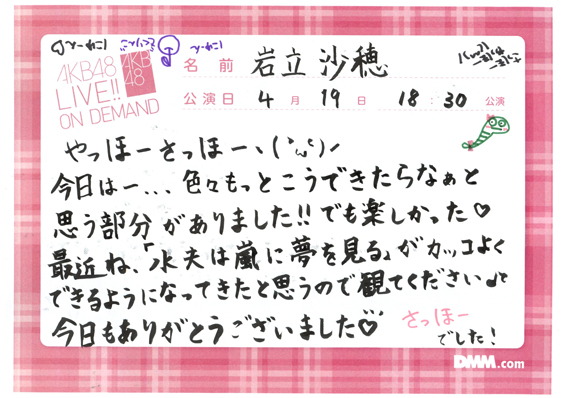 AKB48
LIVE!!
ON DEMAND
AKB
48
名前 岩立 沙穂
公演日 4月19日 18:30 公演
やっほーさっほー、(´ω`)ノ
今日はー... 色々もっとこうできたらなぁと
思う部分がありました!! でも楽しかった♡
最近ね、「水夫は嵐に夢を見る」がカッコよく
できるようになってきたと思うので観てください♪て
今日もありがとうございました♡
さっほー
でした!
DMM.com